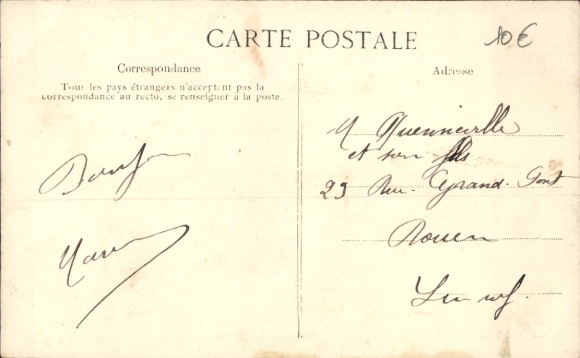 CARTE POSTALE
10€
Correspondance
Tous les pays étrangers n'acceptent pas la
correspondance au recto, se renseigner à la poste.
Adresse
M Quenneville
et son fils
23 Rue Grand. Pont
Rouen